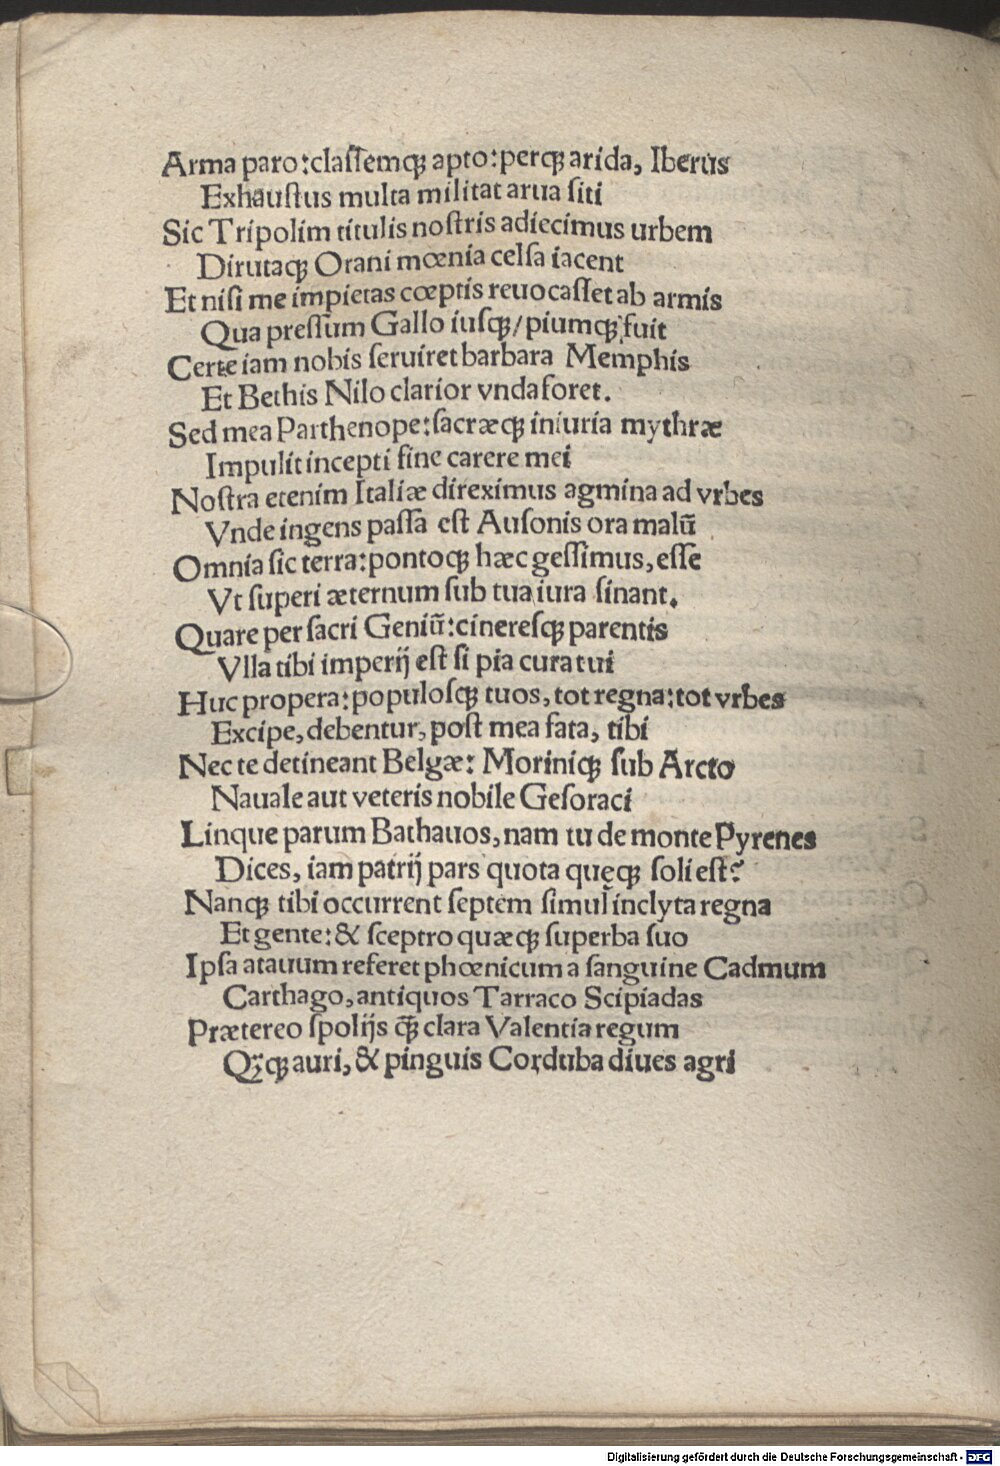 Arma paro:claſſemqꝫ apto:perqꝫ arida, Iberus
Exhauſtus multa militat arua ſiti
Sic Tripolim titulis noſtris adiecimus urbem
Dirutaqꝫ Orani mœnia celſa iacent
Et niſi me impietas cœptis reuocaſſet ab armis
Qua preſſum Gallo iuſqꝫ/piumqꝫ fuit
Certe iam nobis ſeruiret barbara Memphis
Et Bethis Nilo clarior vnda foret.
Sed mea Parthenope:ſacræqꝫ iniuria mythræ
Impulit incepti fine carere mei
Noſtra etenim Italiæ direximus agmina ad vrbes
Vnde ingens paſſa eſt Auſonis ora malū
Omnia ſic terra:pontoqꝫ hæc geſſimus, eſſe
Vt ſuperi æternum ſub tua iura ſinant.
Quare per ſacri Geniū:cinereſqꝫ parentis
Vlla tibi imperij eſt ſi pia cura tui
Huc propera:populoſqꝫ tuos, tot regna:tot vrbes
Excipe, debentur, poſt mea fata, tibi
Nec te detineant Belgæ: Moriniqꝫ ſub Arcto
Nauale aut veteris nobile Geſoraci
Linque parum Bathauos, nam tu de monte Pyrenes
Dices, iam patrij pars quota quęqꝫ ſoli eſt?
Nanqꝫ tibi occurrent ſeptem ſimul inclyta regna
Et gente:& ſceptro quæqꝫ ſuperba ſuo
Ipſa atauum referet phœnicum a ſanguine Cadmum
Carthago, antiquos Tarraco Scipiadas
Prætereo ſpolijs q̄ꝫ clara Valentia regum
Qꝫqꝫ auri, & pinguis Corduba diues agri
Digitalisierung gefördert durch die Deutsche Forschungsgemeinschaft - DFG